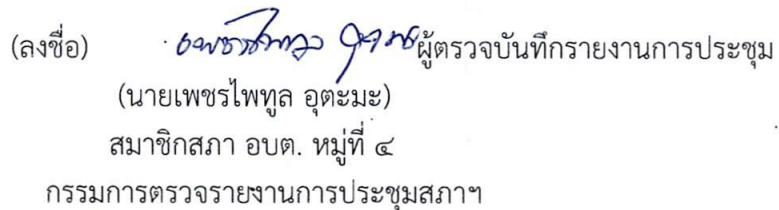 (ลงชื่อ) ผู้ตรวจบันทึกรายงานการประชุม
(นายเพชรไพทูล อุตะมะ)
สมาชิกสภา อบต. หมู่ที่ ๔
กรรมการตรวจรายงานการประชุมสภาฯ